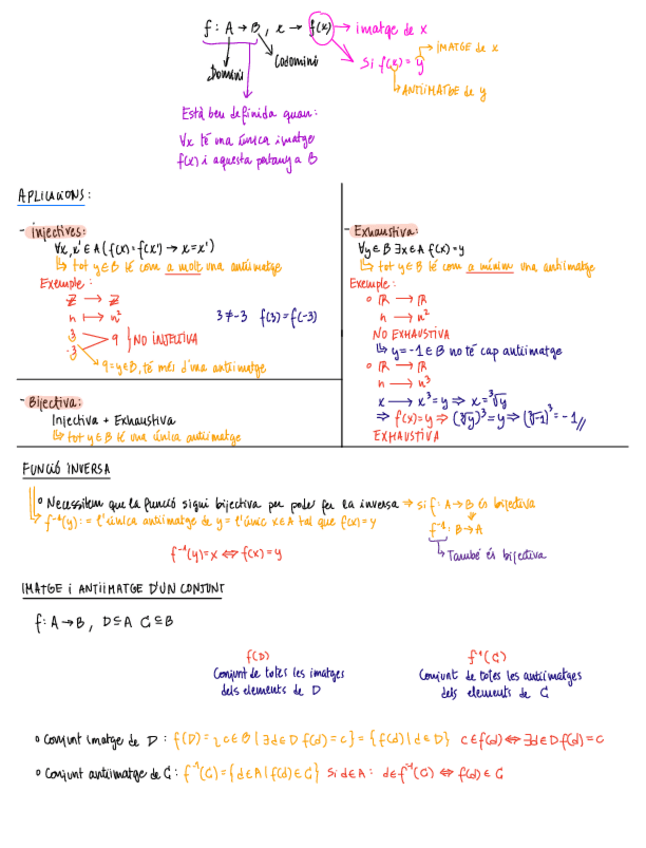 f: A → B, x → f(x) → imatge de x
Domini
Codomini
Si f(x) = y
→ IMATGE de x
↳ ANTIIMATGE de y
Està ben definida quan:
∀x té una única imatge
f(x) i aquesta pertany a B
APLICACIONS:
- Injectives:
∀x,x' ∈ A (f(x) = f(x') → x = x')
↳ tot y ∈ B té com a molt una antiimatge
Exemple:
ℤ → ℤ
n ↦ n²
3 ≠ -3 f(3) = f(-3)
3
-3
9 } NO INJECTIVA
9 = y ∈ B, té més d'una antiimatge
- Bijectiva:
Injectiva + Exhaustiva
↳ tot y ∈ B té una única antiimatge
- Exhaustiva:
∀y ∈ B ∃x ∈ A f(x) = y
↳ tot y ∈ B té com a mínim una antiimatge
Exemple:
o ℝ → ℝ
n → n²
NO EXHAUSTIVA
↳ y = -1 ∈ B no té cap antiimatge
o ℝ → ℝ
n → n³
x → x³ = y ⇒ x = ∛y
⇒ f(x) = y ⇒ (∛y)³ = y ⇒ (∛-1)³ = -1 //
EXHAUSTIVA
FUNCIÓ INVERSA
o Necessitem que la funció sigui bijectiva per poder fer la inversa ⇒ si f: A → B és bijectiva
f⁻¹(y) := l'única antiimatge de y = l'únic x ∈ A tal que f(x) = y
f⁻¹: B → A
↳ També és bijectiva
f⁻¹(y) = x ⇔ f(x) = y
IMATGE i ANTIIMATGE D'UN CONJUNT
f: A → B, D ⊆ A C ⊆ B
f(D)
Conjunt de totes les imatges
dels elements de D
f⁻¹(C)
Conjunt de totes les antiimatges
dels elements de C
o Conjunt imatge de D: f(D) = {c ∈ B | ∃d ∈ D f(d) = c} = {f(d) | d ∈ D} c ∈ f(d) ⇔ ∃d ∈ D f(d) = c
o Conjunt antiimatge de C: f⁻¹(C) = {d ∈ A | f(d) ∈ C} Si d ∈ A: d ∈ f⁻¹(C) ⇔ f(d) ∈ C